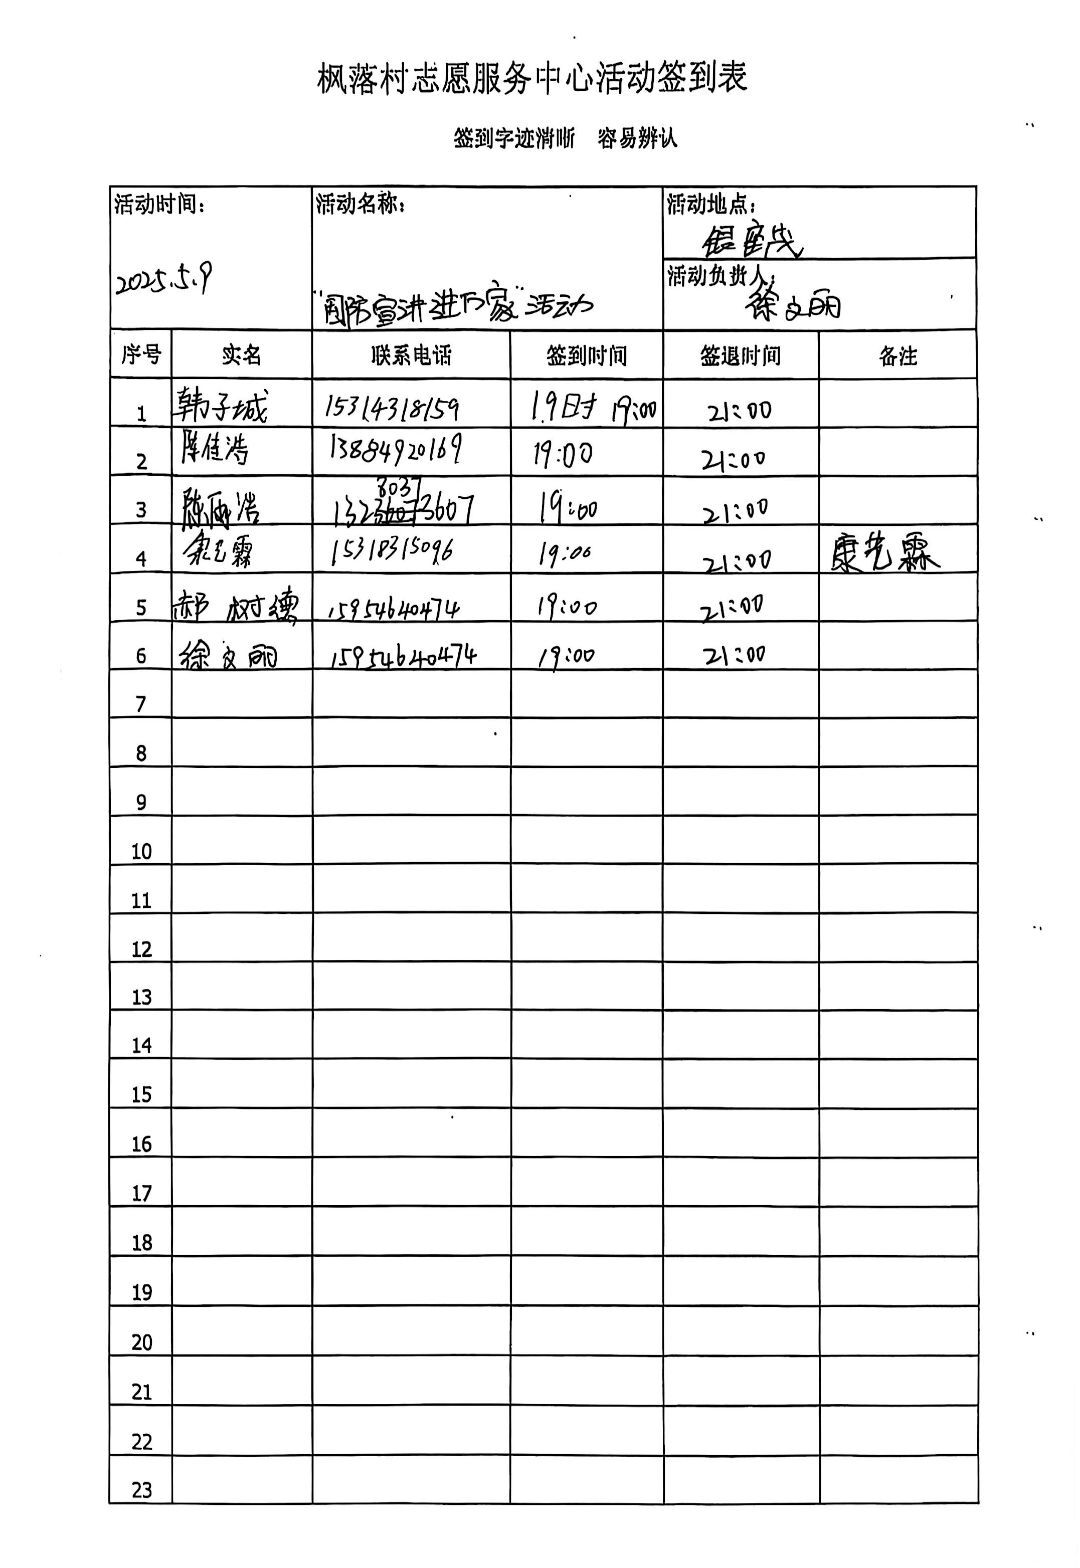 枫落村志愿服务中心活动签到表
签到字迹清晰 容易辨认
活动时间: 活动名称: 活动地点:
银座茂
2025.5.9 "国防宣讲进万家"活动 活动负责人:
徐文丽
序号 实名 联系电话 签到时间 签退时间 备注
1 韩子城 15314318159 19日寸 19:00 21:00
2 陈佳浩 13884920169 19:00 21:00
8037
3 陈雨浩 13236073607 19:00 21:00
4 康艺霖 15318315096 19:00 21:00 康艺霖
5 郝树德 15954640474 19:00 21:00
6 徐文丽 15954640474 19:00 21:00
7
8
9
10
11
12
13
14
15
16
17
18
19
20
21
22
23